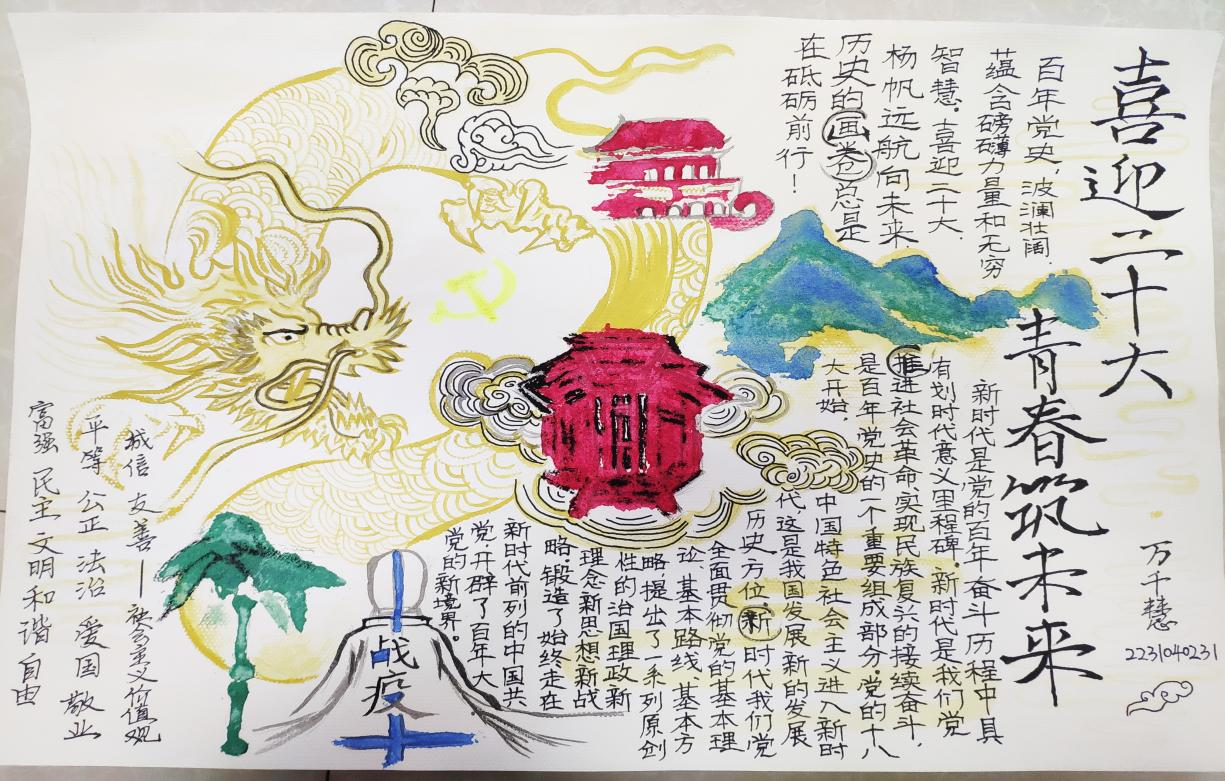 喜迎二十大
青春筑未来
万千慧
2231040231
百年党史,波澜壮阔,
蕴含磅礴力量和无穷
智慧。喜迎二十大,
杨帆远航向未来
历史的画卷总是
在砥砺前行!
新时代是党的百年奋斗历程中具
有划时代意义里程碑。新时代是我们党
推进社会革命,实现民族复兴的接续奋斗,
是百年党史的一个重要组成部分。党的十八
大开始,
中国特色社会主义进入新时
代这是我国发展新的发展
历史方位,新时代我们党
全面贯彻党的基本理
论 基本路线、基本方
略提出了一系列原创
性的治国理政新
理念新思想新战
略,锻造了始终走在
新时代前列的中国共
党开辟了百年大
党的新境界。
战疫
诚信 友善—社会主义价值观
平等 公正 法治 爱国 敬业
富强 民主 文明 和谐 自由